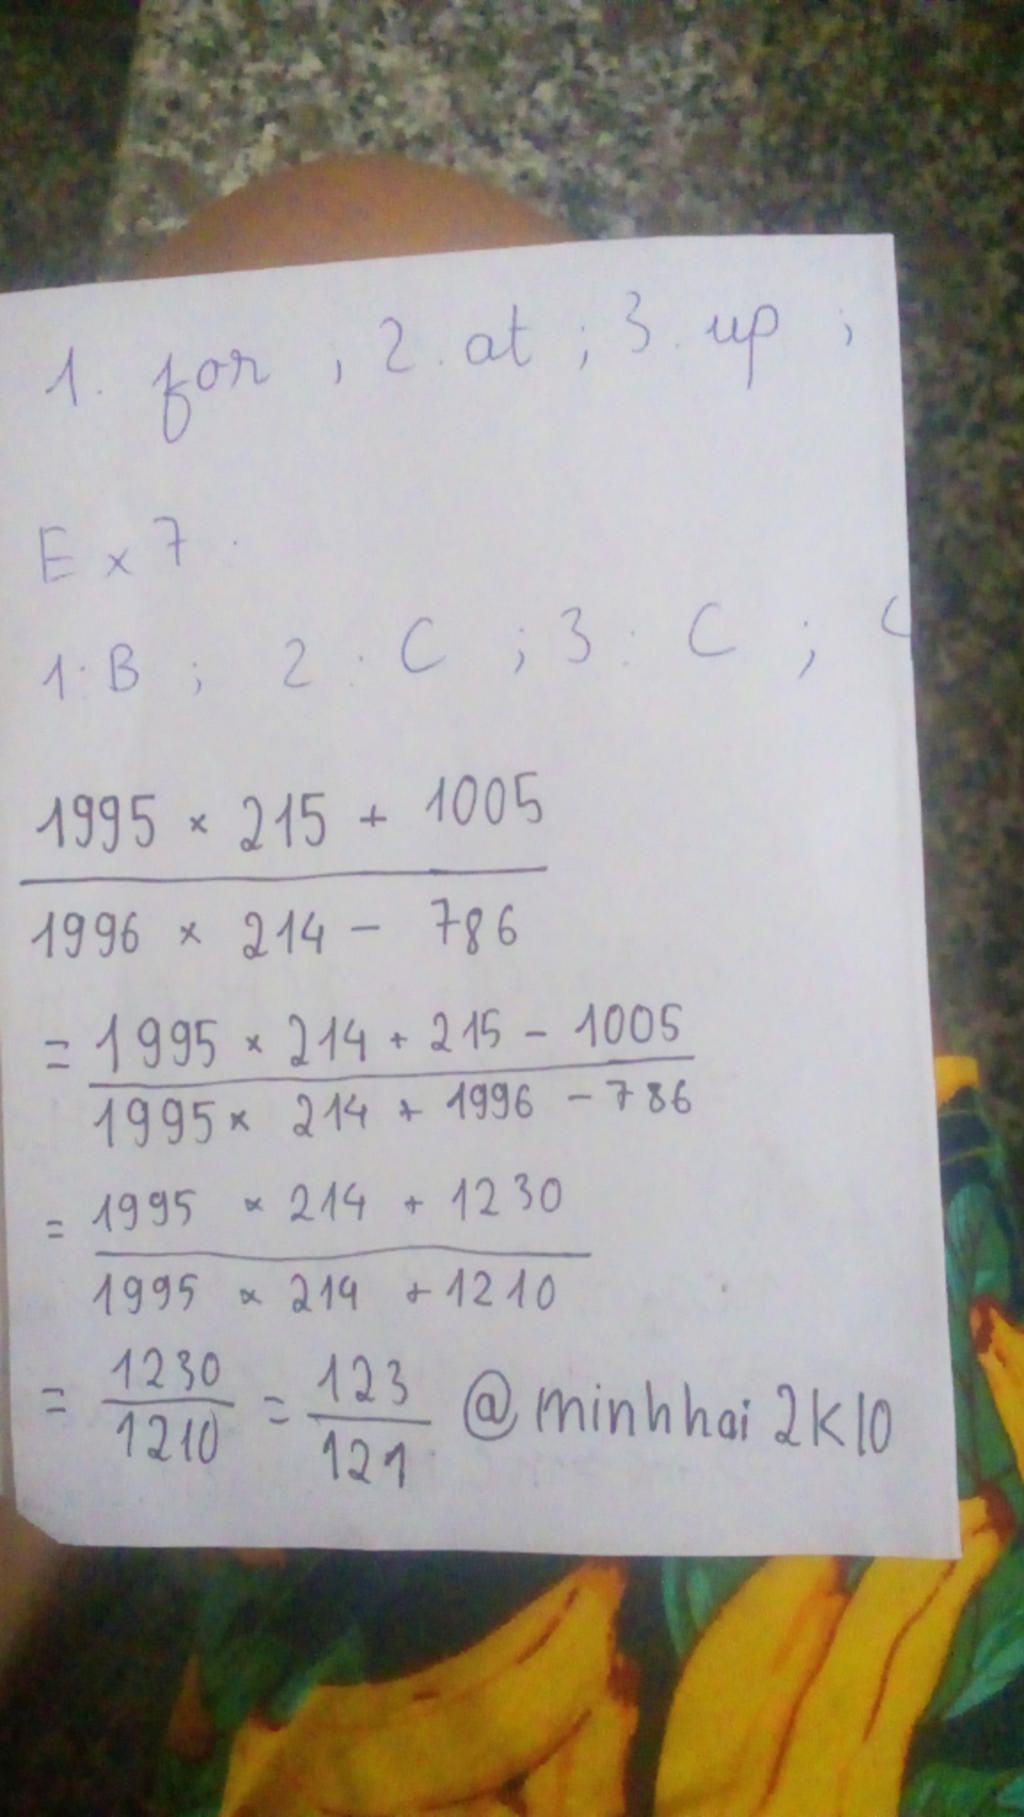 1. for ; 2. at ; 3. up ;
Ex 7.
1: B ; 2 : C ; 3 : C ;
1995 × 215 + 1005
1996 × 214 - 786
= 1995 × 214 + 215 - 1005
1995 × 214 + 1996 - 786
= 1995 × 214 + 1230
1995 × 214 + 1210
= 1230 = 123 @minhhai 2K10
1210 121